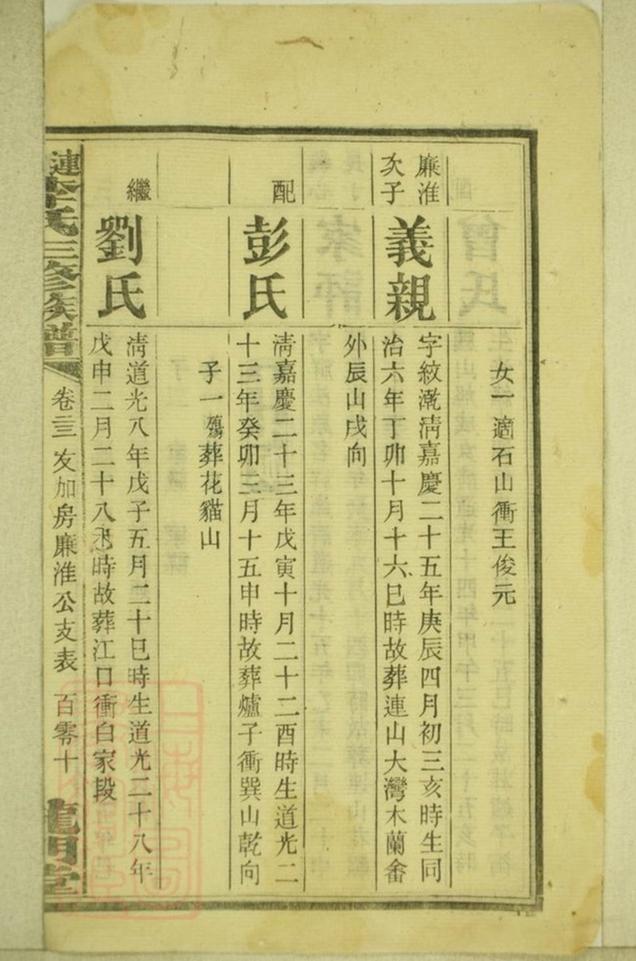 女一適石山衝王俊元
廉淮
次子
義親
字紋㵾淸嘉慶二十五年庚辰四月初三亥時生同
治六年丁卯十月十六巳時故葬連山大灣木蘭畬
外辰山戌向
配
彭氏
淸嘉慶二十三年戊寅十月二十二酉時生道光二
十三年癸卯三月十五申時故葬爐子衝巽山乾向
子一殤葬花貓山
繼
劉氏
淸道光八年戊子五月二十巳時生道光二十八年
戊申二月二十八未時故葬江口衝白家段
漣李氏三修族譜
卷三 友加房廉淮公支表 百零十
龍門堂